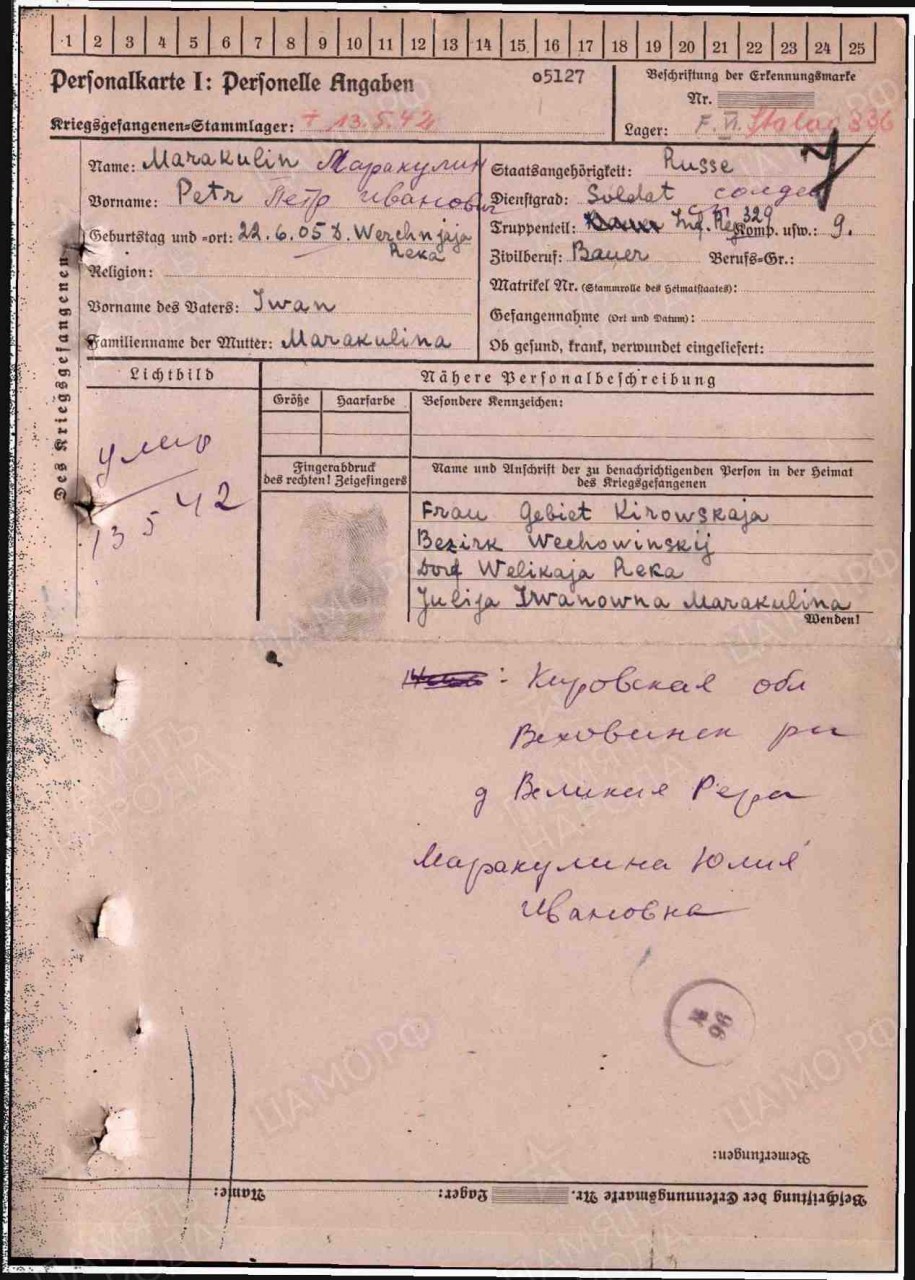 1 2 3 4 5 6 7 8 9 10 11 12 13 14 15 16 17 18 19 20 21 22 23 24 25
Personalkarte I: Personelle Angaben
05127
Beschriftung der Erkennungsmarke
Nr.
Kriegsgefangenen=Stammlager: + 13.5.42
Lager: Stalag 336
Des Kriegsgefangenen
Name: Marakulin Маракулин
Vorname: Petr Петр Иванович
Geburtstag und =ort: 22.6.05 d. Werchnjaja
Reka
Religion:
Vorname des Vaters: Iwan
Familienname der Mutter: Marakulina
Staatsangehörigkeit: Russe
Dienstgrad: Soldat солдат
Truppenteil: Inf. Reg. 329 Komp. usw.: 9.
Zivilberuf: Bauer Berufs=Gr.:
Matrikel Nr. (Stammrolle des Heimatstaates):
Gefangennahme (Ort und Datum):
Ob gesund, krank, verwundet eingeliefert:
Lichtbild
умер
13 5 42
Nähere Personalbeschreibung
Größe Haarfarbe Besondere Kennzeichen:
Fingerabdruck
des rechten! Zeigefingers
Name und Anschrift der zu benachrichtigenden Person in der Heimat
des Kriegsgefangenen
Frau Gebiet Kirowskaja
Bezirk Wechowinskij
Dorf Welikaja Reka
Julija Iwanowna Marakulina
Wenden!
Кировская обл
Веховинск рн
д Великая Река
Маракулина Юлия
Ивановна
96
Bemerkungen:
Beschriftung der Erkennungsmarke Nr. Lager: Name:
ЦАМО РФ
ПАМЯТЬ
НАРОДА